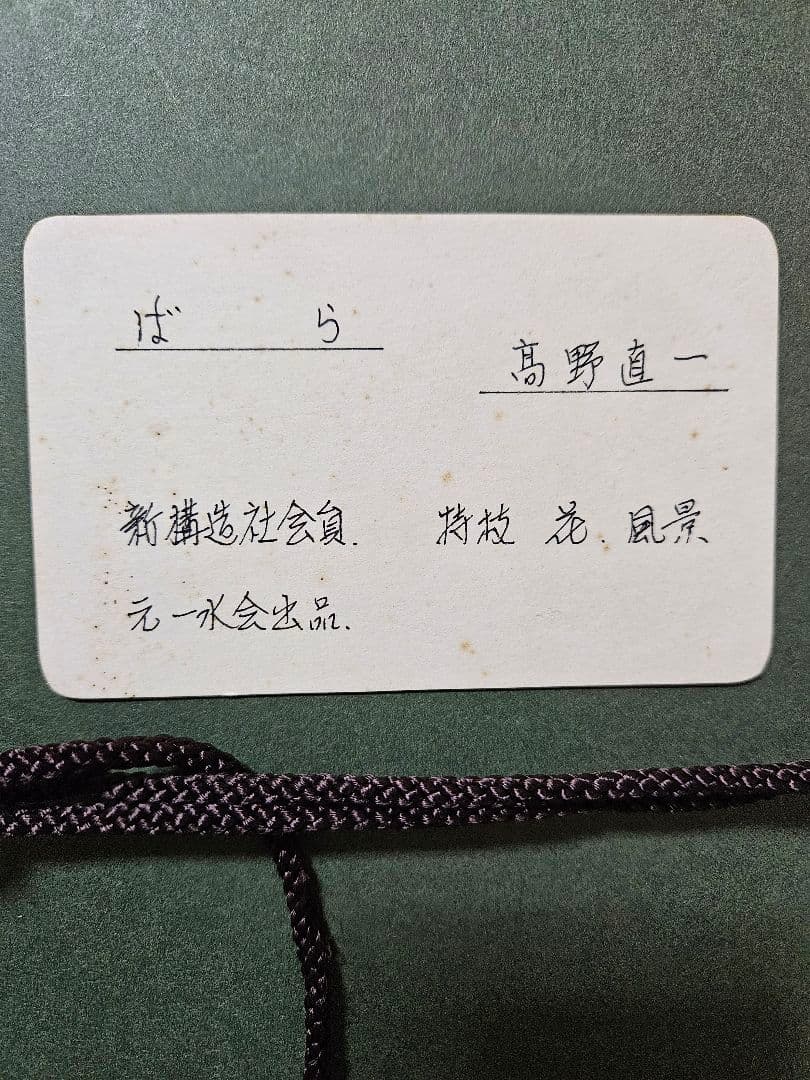 ばら
髙野直一
新構造社会員. 特技 花、風景
元一水会出品.